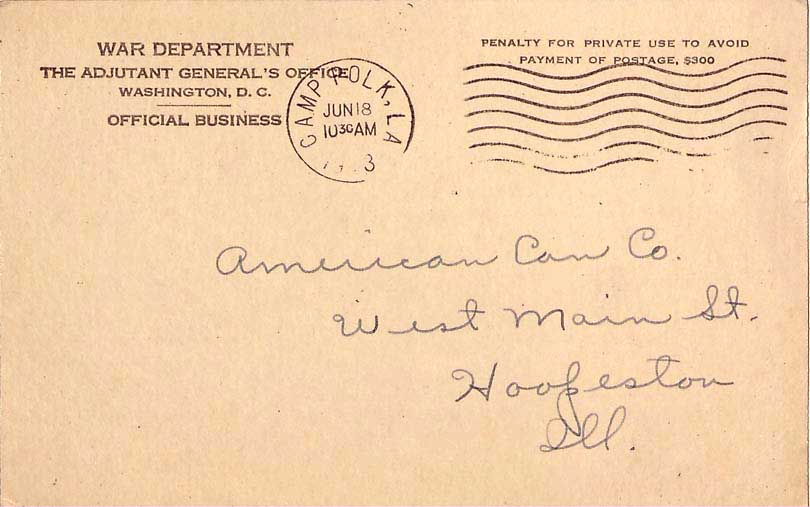 WAR DEPARTMENT
THE ADJUTANT GENERAL'S OFFICE
WASHINGTON, D. C.
OFFICIAL BUSINESS
CAMP POLK, LA
JUN 18
10 30 AM
PENALTY FOR PRIVATE USE TO AVOID
PAYMENT OF POSTAGE, $300
American Can Co.
West Main St.
Hoopeston
Ill.